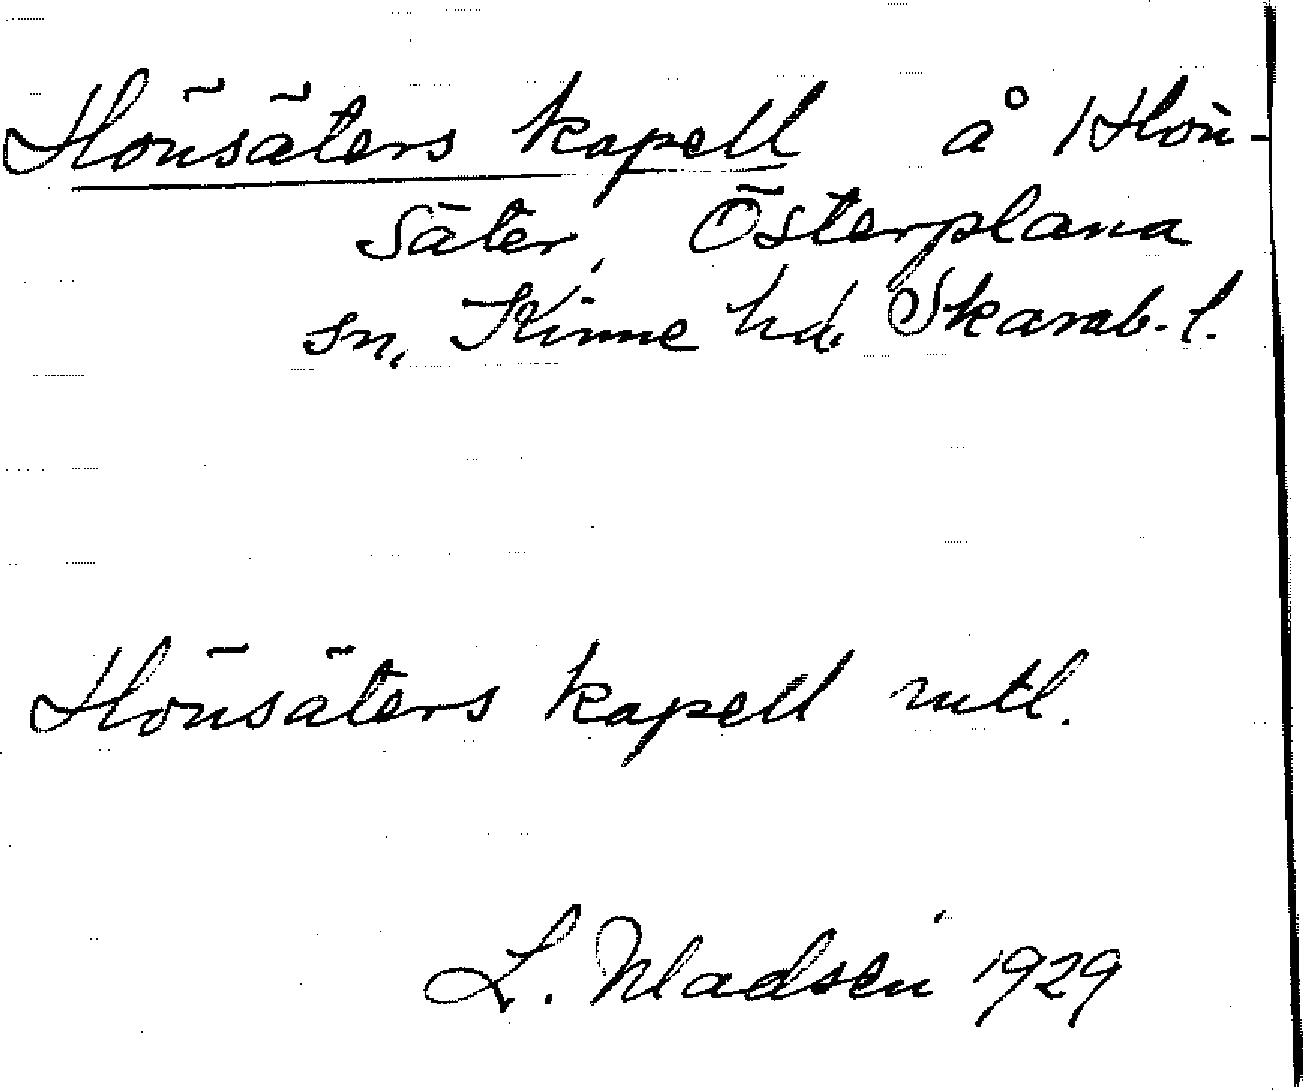 Hönsäters kapell å Hön-
säter, Österplana
sn, Kinne hd, Skarab. l.
Hönsäters kapell mtl.
L. Madsén 1929